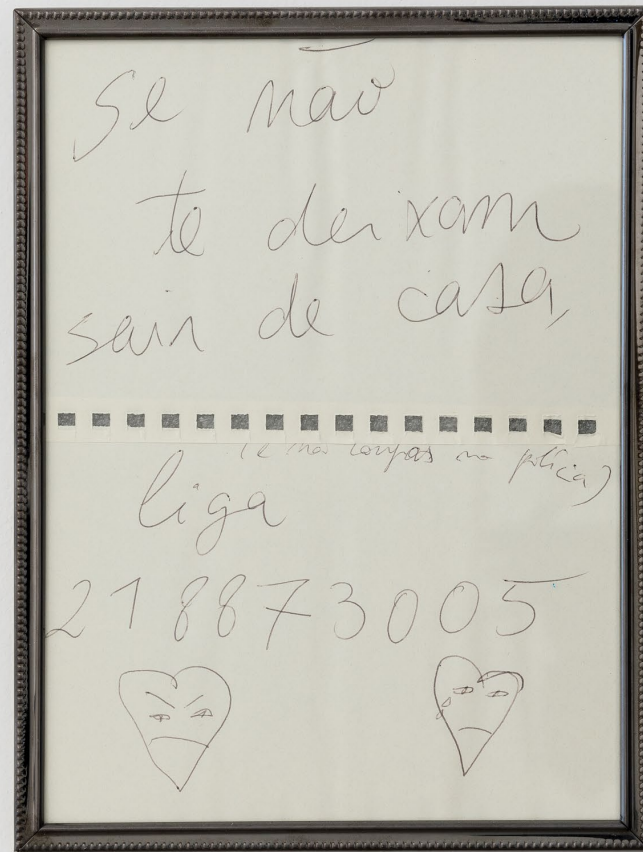 Se não
te deixam
sair de casa,
(e não confias na polícia)
liga
218873005